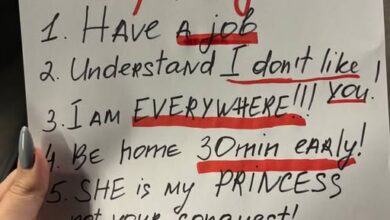 1. HAVE a job
2. Understand I don't like
you!
3. I AM EVERYWHERE!!!
4. BE home 30min early!
5. SHE is my PRINCESS
not your conquest!